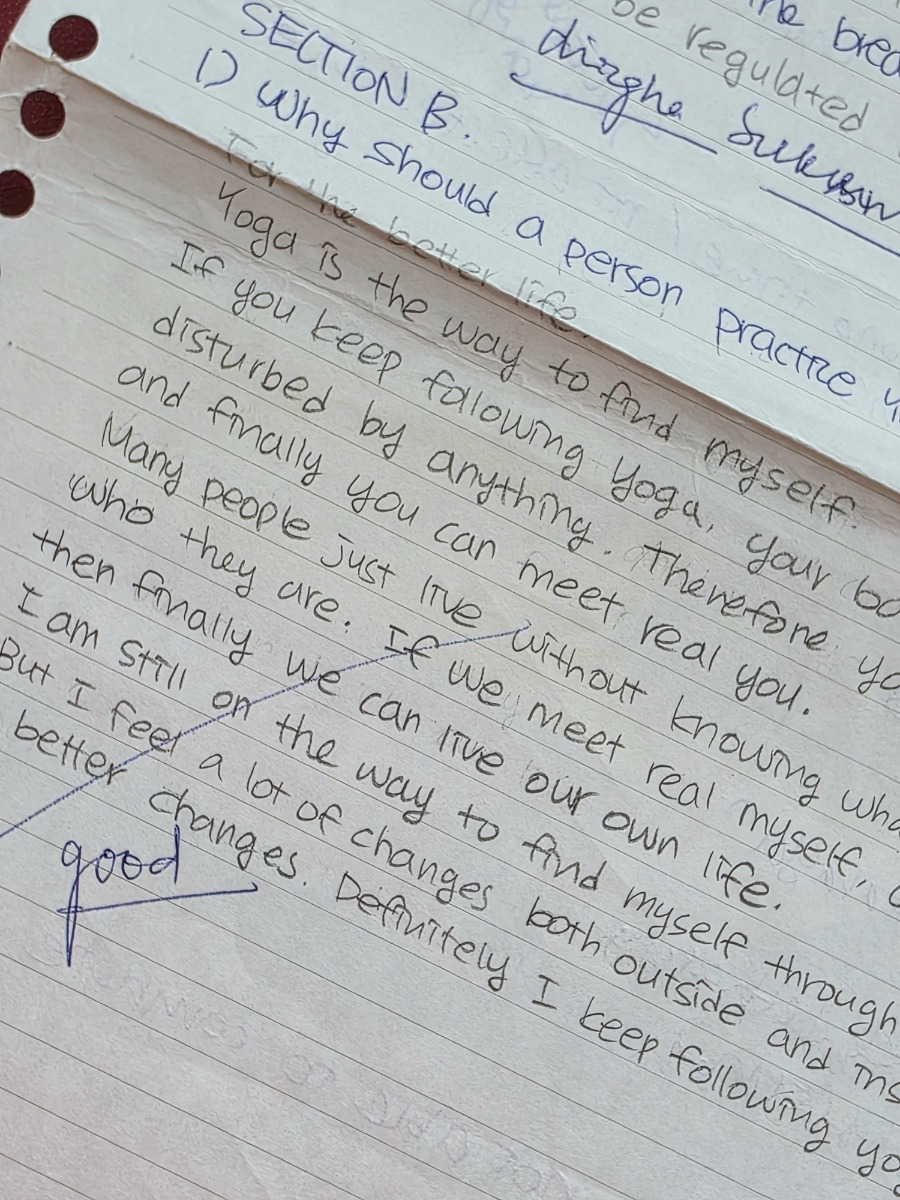 the
be regulated
dirgha
SECTION B.
1) Why should a person practice
For the better life.
Yoga is the way to find myself.
If you keep following yoga, your
disturbed by anything. Therefore
and finally you can meet real you.
Many people just live without knowing
who they are. If we meet real myself,
then finally we can live our own life.
I am still on the way to find myself through
But I feel a lot of changes both outside and
better changes. Definitely I keep following
good